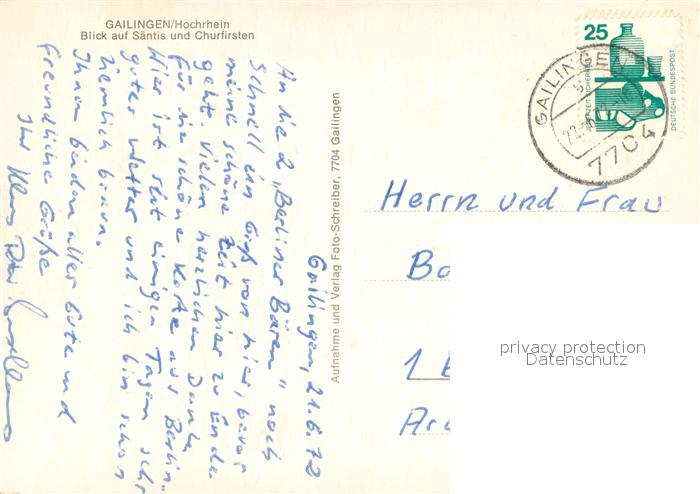 GAILINGEN/Hochrhein
Blick auf Säntis und Churfirsten
Gailingen, 21.6.72
An die 2 „Berliner Bären" noch
schnell ein Gruß von hier, bevor
meine schöne Zeit hier zu Ende
geht. Vielen herzlichen Dank
für die schöne Karte aus Berlin.
Hier ist seit einigen Tagen sehr
gutes Wetter und ich bin schon
ziemlich braun.
Ihnen beiden alles Gute und
freundliche Grüße
Ihr Klaus Peter
Aufnahme und Verlag Foto-Schreiber, 7704 Gailingen
25
DEUTSCHE BUNDESPOST
JEDERZEIT SICHERHEIT
GAILINGEN
7704
Herrn und Frau
Ba
1 B
privacy protection
Datenschutz